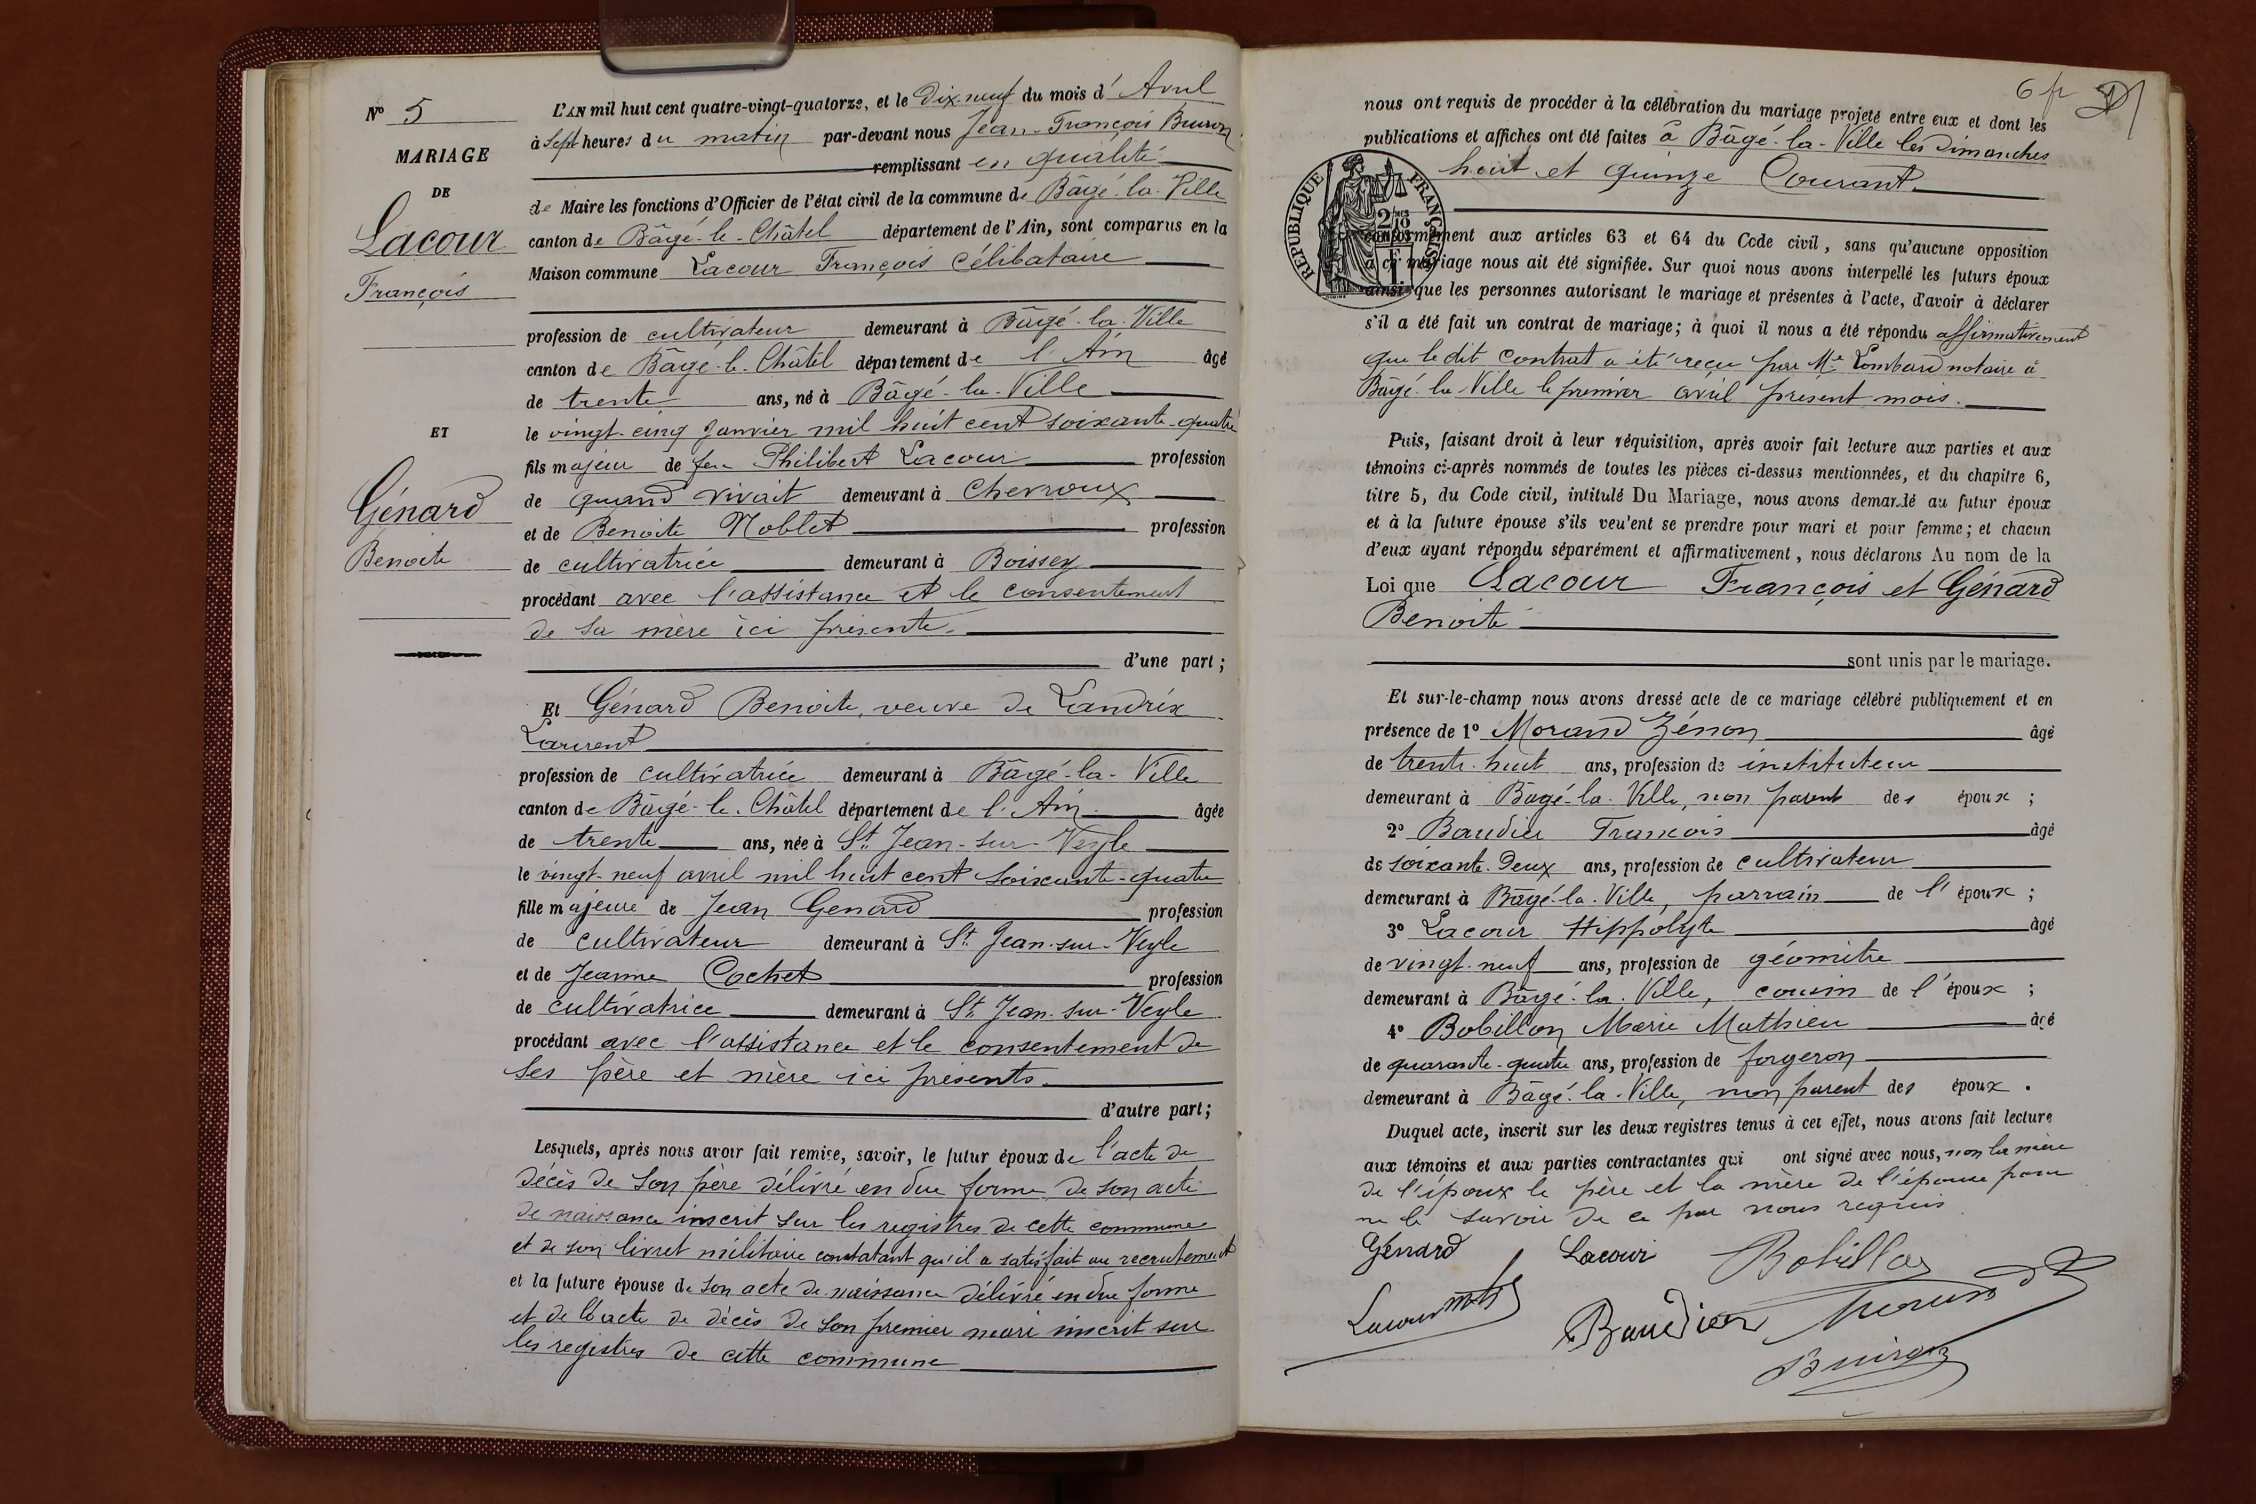 N° 5
MARIAGE
DE
Lacour
François
ET
Génard
Benoite
L'AN mil huit cent quatre-vingt-quatorze, et le Dix-neuf du mois d'Avril
à Sept heures du matin par-devant nous Jean-François Buiron
remplissant en qualité
de Maire les fonctions d'Officier de l'état civil de la commune de Bâgé-la-Ville
canton de Bâgé-le-Châtel département de l'Ain, sont comparus en la
Maison commune Lacour François Célibataire
profession de cultivateur demeurant à Bâgé-la-Ville
canton de Bâgé-le-Châtel département de l'Ain âgé
de trente ans, né à Bâgé-la-Ville
le vingt-cinq Janvier mil huit cent soixante-quatre
fils majeur de feu Philibert Lacour profession
de quand vivait demeurant à Chevroux
et de Benoite Noblet profession
de cultivatrice demeurant à Boissey
procédant avec l'assistance et le consentement
de sa mère ici présente.
d'une part;
Et Génard Benoite, veuve de Landrix
Laurent
profession de cultivatrice demeurant à Bâgé-la-Ville
canton de Bâgé-le-Châtel département de l'Ain âgée
de trente ans, née à St. Jean-sur-Veyle
le vingt-neuf avril mil huit cent soixante-quatre
fille majeure de Jean Genard profession
de cultivateur demeurant à St. Jean-sur-Veyle
et de Jeanne Cochet profession
de cultivatrice demeurant à St. Jean-sur-Veyle
procédant avec l'assistance et le consentement de
ses père et mère ici présents.
d'autre part;
Lesquels, après nous avoir fait remise, savoir, le futur époux de l'acte de
décès de son père délivré en due forme de son acte
de naissance inscrit sur les registres de cette commune
et de son livret militaire constatant qu'il a satisfait au recrutement
et la future épouse de son acte de naissance délivré en due forme
et de l'acte de décès de son premier mari inscrit sur
les registres de cette commune
6 fr
nous ont requis de procéder à la célébration du mariage projeté entre eux et dont les
publications et affiches ont été faites à Bâgé-la-Ville les Dimanches
huit et quinze Courant.
REPUBLIQUE FRANÇAISE
conformément aux articles 63 et 64 du Code civil, sans qu'aucune opposition
à ce mariage nous ait été signifiée. Sur quoi nous avons interpellé les futurs époux
ainsi que les personnes autorisant le mariage et présentes à l'acte, d'avoir à déclarer
s'il a été fait un contrat de mariage; à quoi il nous a été répondu affirmativement
que le dit contrat a été reçu par Me. Lombard notaire à
Bâgé-la-Ville le premier avril présent mois.
Puis, faisant droit à leur réquisition, après avoir fait lecture aux parties et aux
témoins ci-après nommés de toutes les pièces ci-dessus mentionnées, et du chapitre 6,
titre 5, du Code civil, intitulé Du Mariage, nous avons demandé au futur époux
et à la future épouse s'ils veulent se prendre pour mari et pour femme; et chacun
d'eux ayant répondu séparément et affirmativement, nous déclarons Au nom de la
Loi que Lacour François et Génard
Benoite
sont unis par le mariage.
Et sur-le-champ nous avons dressé acte de ce mariage célébré publiquement et en
présence de 1° Morand Zénon âgé
de trente-huit ans, profession de instituteur
demeurant à Bâgé-la-Ville, non parent des époux;
2° Baudier François âgé
de soixante-Deux ans, profession de cultivateur
demeurant à Bâgé-la-Ville, parrain de l'époux;
3° Lacour Hippolyte âgé
de vingt-neuf ans, profession de géomètre
demeurant à Bâgé-la-Ville, cousin de l'époux;
4° Bobillon Marie Mathieu âgé
de quarante-quatre ans, profession de forgeron
demeurant à Bâgé-la-Ville, non parent des époux.
Duquel acte, inscrit sur les deux registres tenus à cet effet, nous avons fait lecture
aux témoins et aux parties contractantes qui ont signé avec nous, non la mère
de l'époux le père et la mère de l'épouse pour
ne le savoir de ce par nous requis
Génard Lacour Bobillon
Lacour Baudier Morand
Buiron